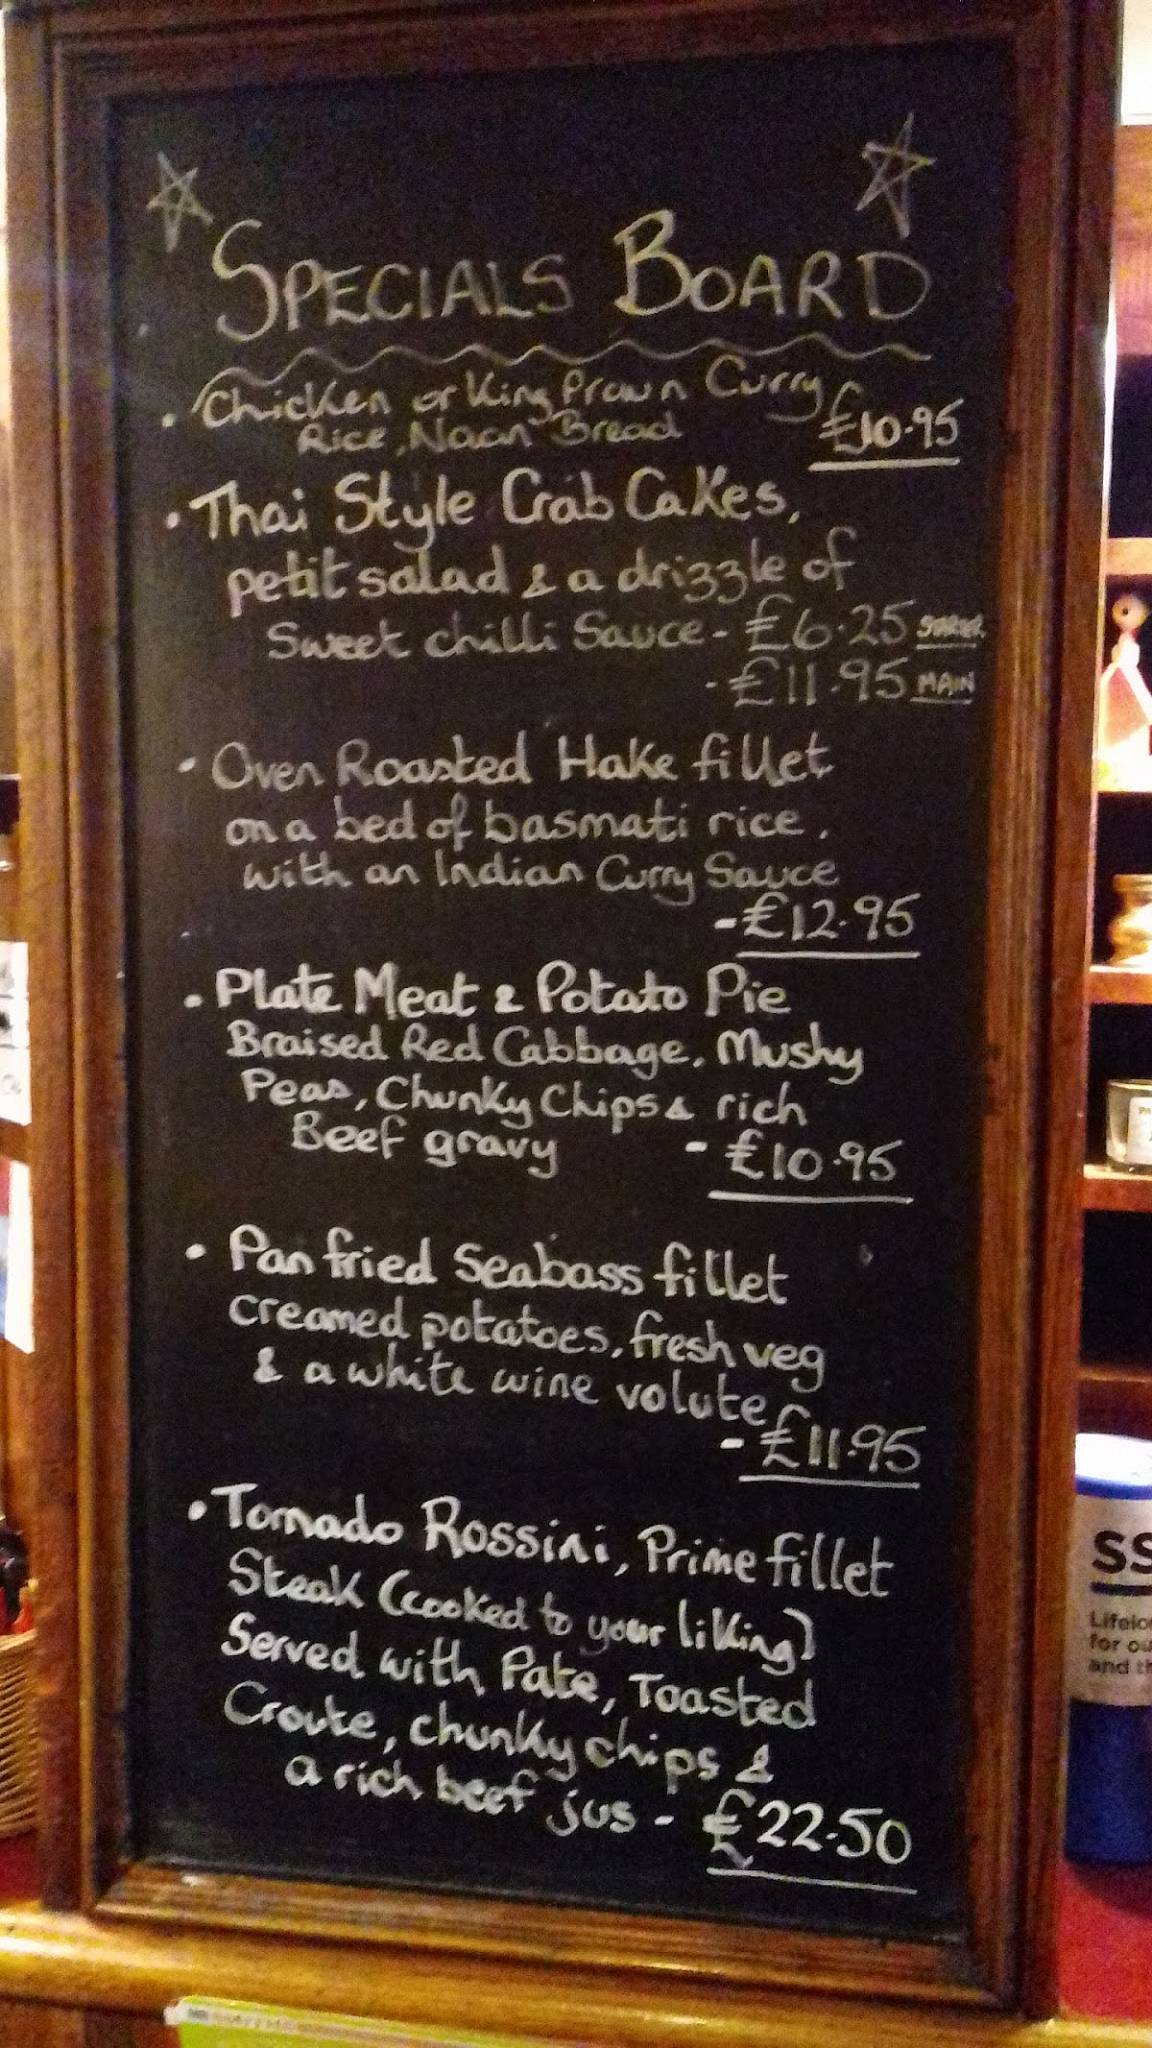 SPECIALS BOARD
• Chicken or King Prawn Curry
Rice, Naan Bread £10.95
• Thai Style Crab Cakes,
petit salad & a drizzle of
Sweet chilli Sauce - £6.25 STARTER
- £11.95 MAIN
• Oven Roasted Hake fillet
on a bed of basmati rice.
with an Indian Curry Sauce
- £12.95
• Plate Meat & Potato Pie
Braised Red Cabbage, Mushy
Peas, Chunky Chips & rich
Beef gravy - £10.95
• Pan fried Seabass fillet
creamed potatoes, fresh veg
& a white wine volute
- £11.95
• Tornado Rossini, Prime fillet
Steak (cooked to your liking)
Served with Pate, Toasted
Croute, chunky chips &
a rich beef jus - £22.50
SS
for ou